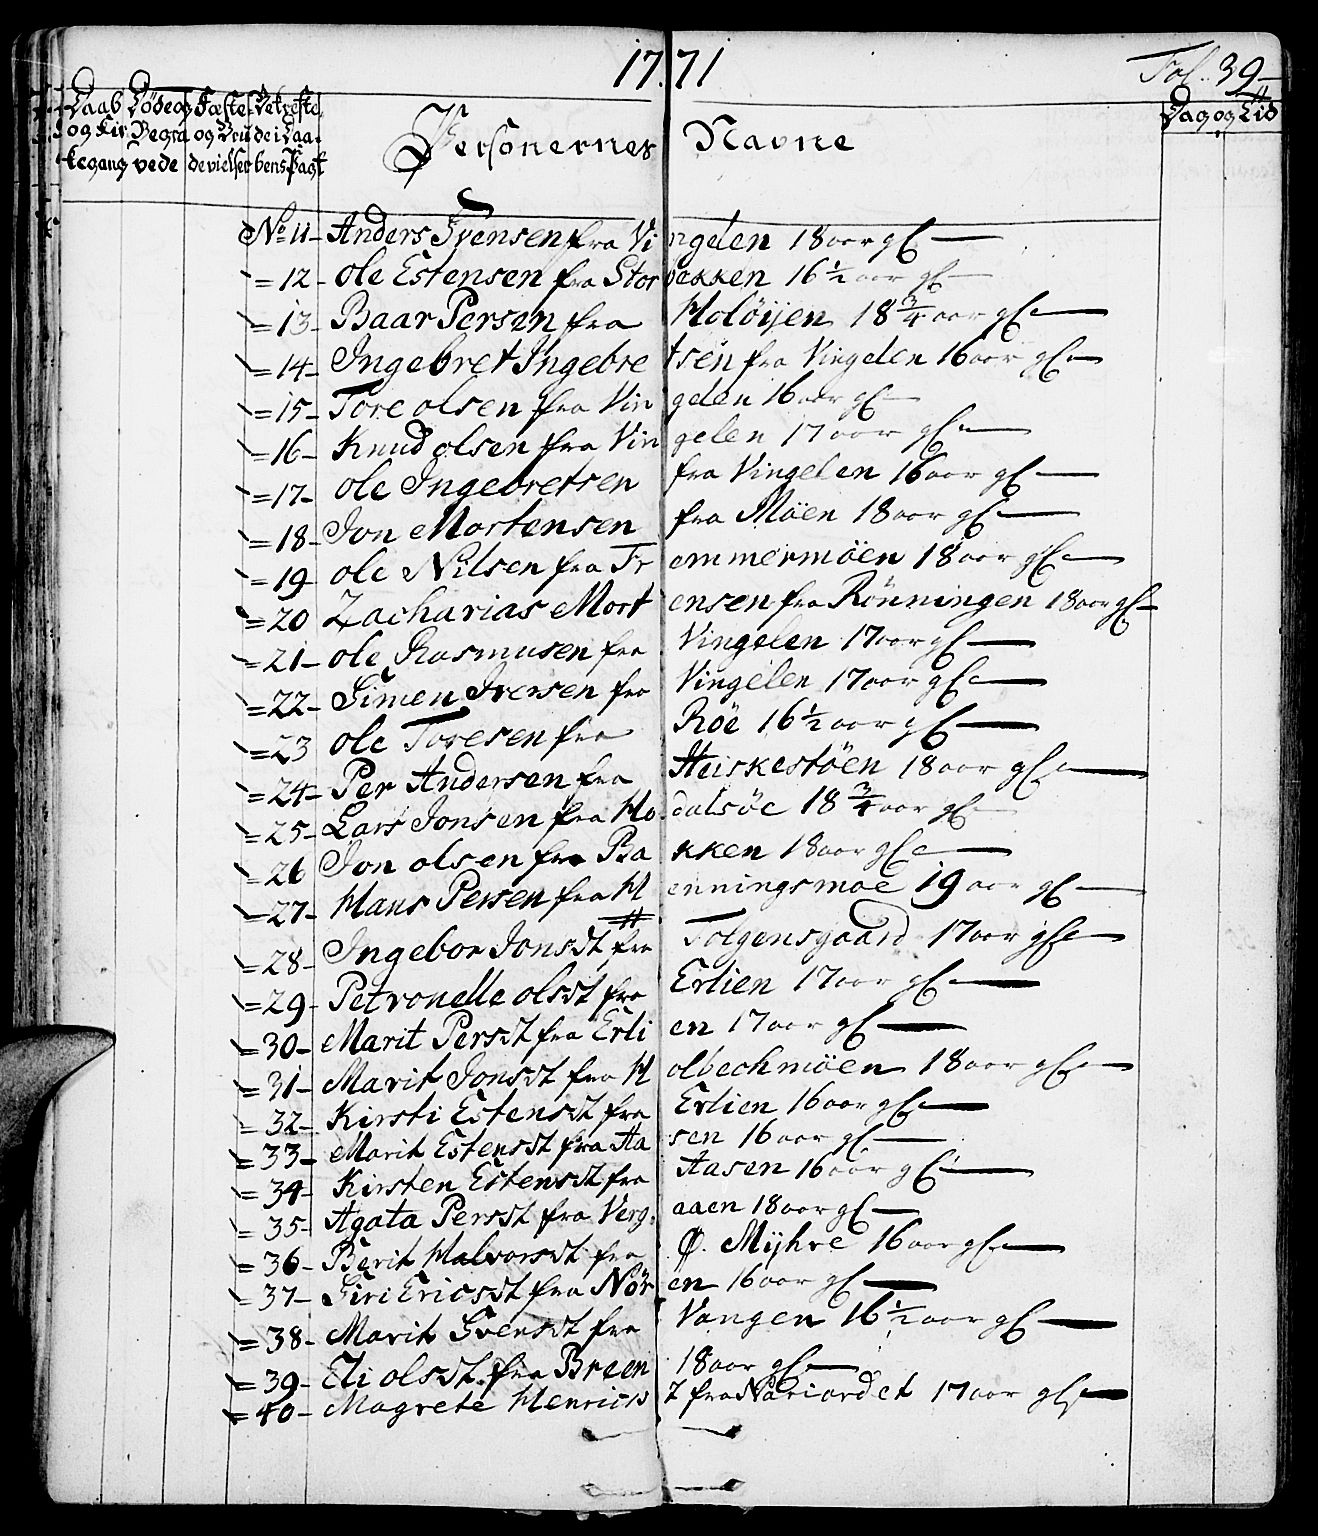 1771
Fol. 39
Daab og Kirkegang
Døde og Begravede
Fæste og Brudevielser
Bekrefte, de i Daabens Pagt
Personernes Navne
Dag og Tid
No 11 - Anders Svensen fra Vingelen 18 aar gl
= 12 - Ole Estensen fra Storbakken 16 1/2 aar gl
= 13 - Baar Persen fra Holøijen 18 3/4 aar gl
= 14 - Ingebret Ingebretsen fra Vingelen 16 aar gl
= 15 - Tore olsen fra Vingelen 16 aar gl
= 16 - Knud olsen fra Vingelen 17 aar gl
= 17 - ole Ingebretsen fra Vingelen 16 aar gl
= 18 - Jon Mortensen fra Möen 18 aar gl
= 19 - ole Nilsen fra Tremmermöen 18 aar gl
= 20 Zacharias Mortensen fra Rönningen 18 aar gl
= 21 - ole Rasmusen fra Vingelen 17 aar gl
= 22 - Simen Iversen fra Vingelen 17 aar gl
= 23 ole Toresen fra Röe 16 1/2 aar gl
= 24 - Per Andersen fra Heiskestöen 18 aar gl
= 25 - Lars Jonsen fra Hodalsöe 18 3/4 aar gl
= 26 Jon olsen fra Bakken 18 aar gl
= 27 - Hans Persen fra Henningsmoe 19 aar gl
= 28 - Ingebor Jonsdt fra Tolgensgaard 17 aar gl
= 29 - Petronelle olsdt fra Erlien 17 aar gl
= 30 - Marit Persdt fra Erlien 17 aar gl
= 31 - Marit Jonsdt fra Holbechmöen 18 aar gl
= 32 - Kirsti Estensdt fra Erlien 16 aar gl
= 33 - Marit Estensdt fra Aasen 16 aar gl
= 34 - Kirsten Estensdt fra Aasen 16 aar gl
= 35 - Agata Persdt fra Vergaaen 18 aar gl
= 36 - Berit Halvorsdt fra Ø. Mijhre 16 aar gl
= 37 - Siri Ericsdt fra Nören 16 aar gl
= 38 - Marit Svensdt fra Vangen 16 1/2 aar gl
= 39 - Eli olsdt. fra Breen 18 aar gl
= 40 - Magrete Henricsdt fra 17 aar gl